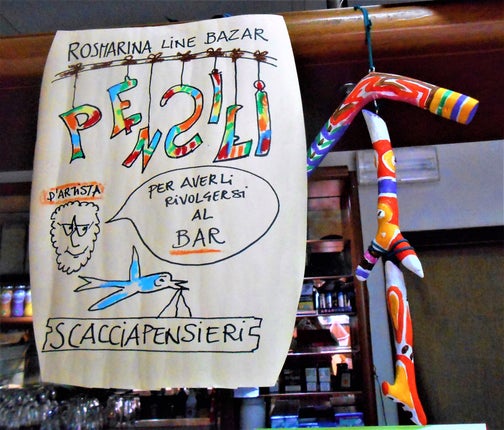 ROSMARINA LINE BAZAR
PENSILI
D'ARTISTA
PER AVERLI
RIVOLGERSI
AL
BAR
SCACCIAPENSIERI